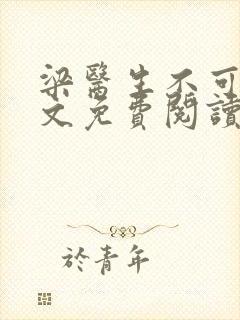 梁醫生不可
文免費閱讀
於青年